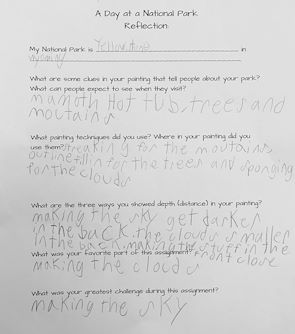 A Day at a National Park
Reflection:
My National Park is Yellowstone in
Wyoming
What are some clues in your painting that tell people about your park?
What can people expect to see when they visit?
mamoth Hot tub, trees and
moutains
What painting techniques did you use? Where in your painting did you
use them? streaking for the moutains,
outline fill in for the trees and sponging
for the clouds
What are the three ways you showed depth (distance) in your painting?
making the sky get darker
in the back. the clouds smaller
in the back. making the stuff in the
What was your favorite part of this assignment? front close
making the clouds
What was your greatest challenge during this assignment?
making the sky